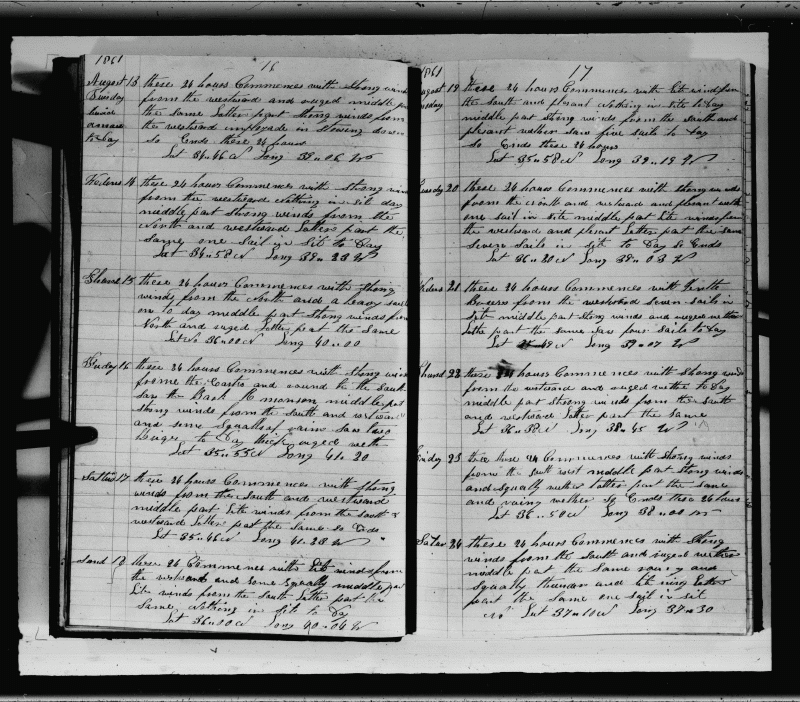 1861
16
August 13 these 24 hours Commences with Strong wind
Tuesday from the westward and ruged middle par
the Same Latter part Strong winds from
the westward imployde in Stowing down
to Day So Ends these 24 hours
Lat 34..46 N Long 39..06 W
Wedens 14 these 24 hours Commences with Strong win
from the westward Nothing in Sit day
middle part Strong winds from the
North and westward Latter part the
Same one Sail in Sit to Day
Lat 34..58 N Long 39..23 W
Thursd 15 these 24 hours Commences with Strong
winds from the North and a heavy
on to day middle part Strong winds from
North and ruged Latter part the Same
Lat 36..00 N Long 40..00
Friday 16 these 24 hours Commences with Strong win
frome the and round to the South
Saw the Bark middle part
Strong winds from the South and westward
and Some Squalls of rain Saw
to Day thick ruged weth
Lat 35..55 N Long 41..20
Saturd 17 these 24 hours Commences with Strong
winds from the South and westward
middle part Lite winds from the South &
westward Latter part the Same So Ends
Lat 35..46 N Long 41..23 W
Sund 18 these 24 Commences with Lit winds from
the westward and Some Squally middle par
Lite winds from the South Latter part the
Same Nothing in Sit to Day
Lat 36..00 N Long 40..04 W
1861
17
August 19 these 24 hours Commences with Lit winds from
the South and plesant Nothing in Site to Day
middle part Strong winds from the South and
plesant wether Saw five Sails to Day
So Ends these 24 hours
Lat 35..58 N Long 39..19 W
Tuesday 20 these 24 hours Commences with Strong winds
from the North and westward and plesant weth
one Sail in Site middle part Lite winds from
the westward and plesant Latter part the Same
Seven Sails in Sit to Day So Ends
Lat 36..20 N Long 39..03 W
Wedens 21 these 24 hours Commences with
from the westward Seven Sails in
Sit middle part Strong winds and ruged wether
Latter part the Same Saw four Sails to Day
Lat 49 N Long 39..07 W
Thursd 22 these 24 hours Commences with Strong winds
form the westward and ruged wether to Day
middle part Strong winds from the South
and westward Latter part the Same
Lat 36..38 N Long 38..45 W
Friday 23 these 24 Commences with Strong winds
from the South west middle part Strong winds
and Squally wether Latter part the Same
and rainy wether So Ends these 24 hours
Lat 36..50 N Long 38..00 W
Satur 24 these 24 hours Commences with Strong
winds from the South and ruged wether
middle part the Same rainy and
Squally thunder and Latter
part the Same one Sail in Sit
Lat 37..10 N Long 37..30